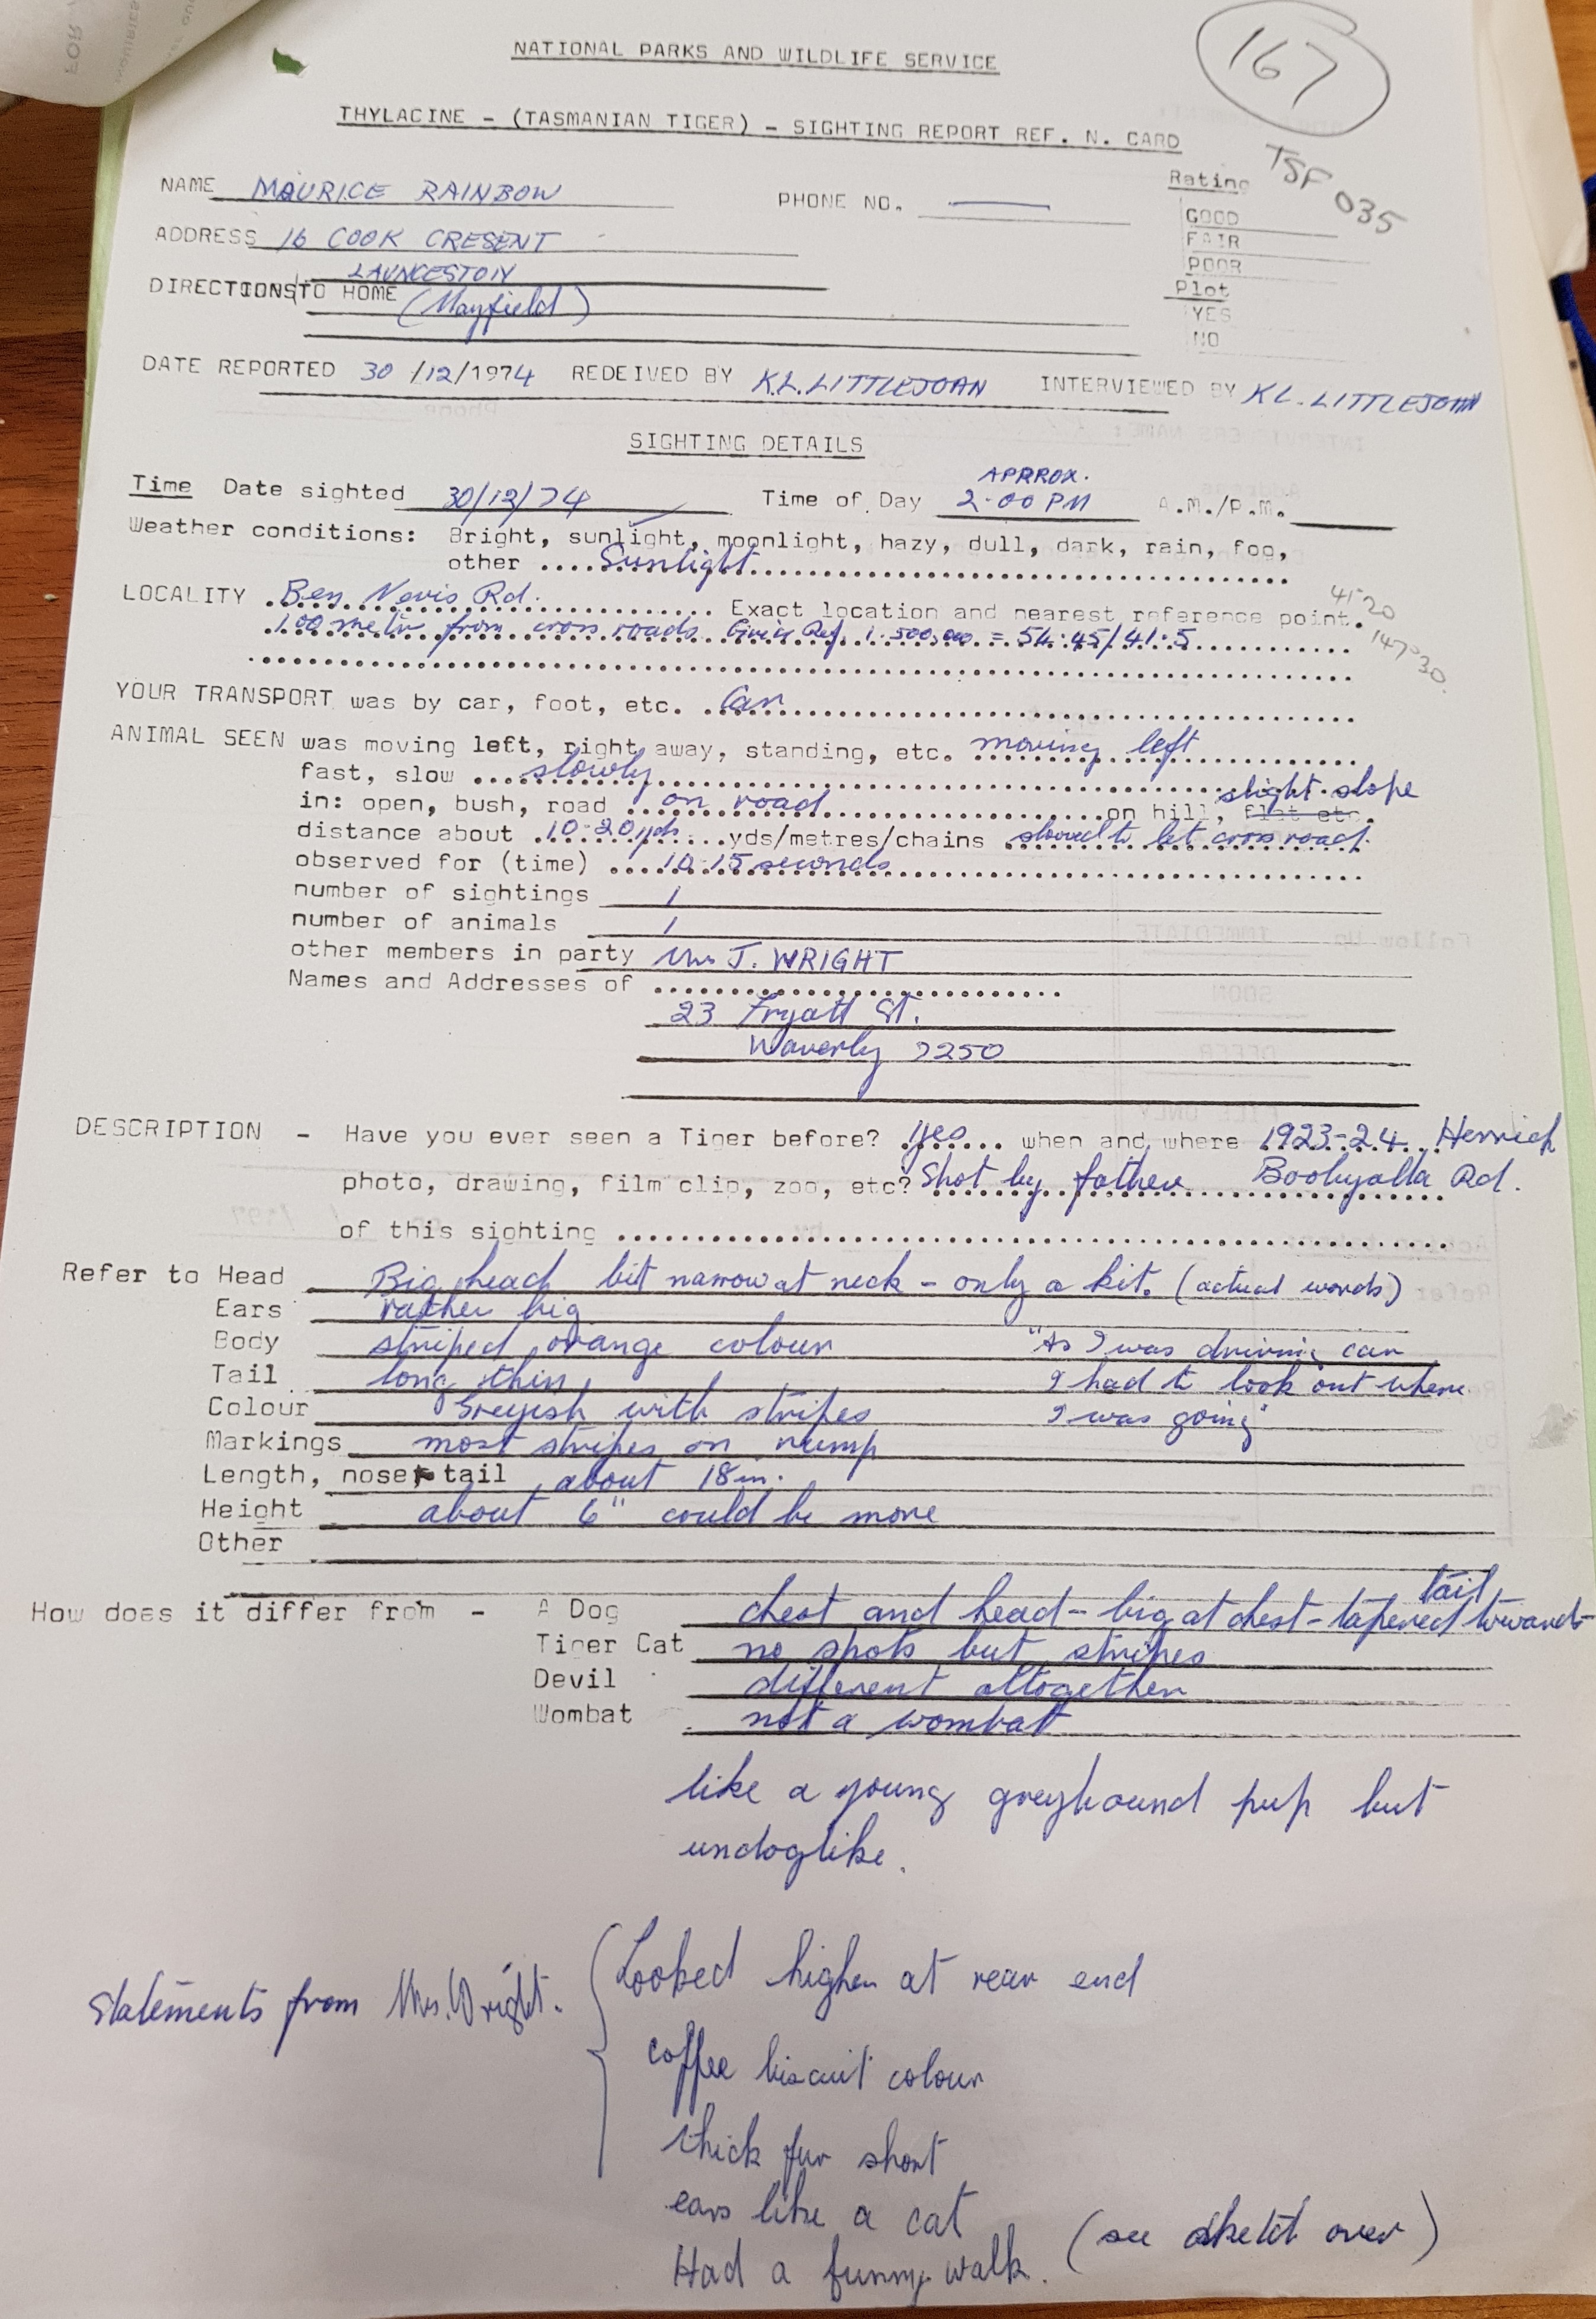 NATIONAL PARKS AND WILDLIFE SERVICE
167
THYLACINE - (TASMANIAN TIGER) - SIGHTING REPORT REF. N. CARD
TSF 035
NAME MAURICE RAINBOW PHONE NO. —
Rating
GOOD
FAIR
POOR
Plot
YES
NO
ADDRESS 16 COOK CRESENT
LAUNCESTON
DIRECTIONS TO HOME (Mayfield)
DATE REPORTED 30/12/1974 REDEIVED BY K.L. LITTLEJOHN INTERVIEWED BY K L. LITTLEJOHN
SIGHTING DETAILS
Time Date sighted 30/12/74 Time of Day APRROX. 2.00 PM A.M./P.M.
Weather conditions: Bright, sunlight, moonlight, hazy, dull, dark, rain, fog,
other Sunlight
LOCALITY Ben Nevis Rd. Exact location and nearest reference point.
41°20
100 metre from cross roads 1:500,000 = 54:45/41:5
147°30.
YOUR TRANSPORT was by car, foot, etc. Car
ANIMAL SEEN was moving left, right away, standing, etc. moving left
fast, slow slowly
in: open, bush, road on road on hill, flat etc. slight slope
distance about 10-20 yds yds/metres/chains slowed to let cross road.
observed for (time) 10-15 seconds
number of sightings 1
number of animals 1
other members in party Mrs J. WRIGHT
Names and Addresses of
23 Fryatt St.
Waverly 7250
DESCRIPTION - Have you ever seen a Tiger before? yes when and where 1923-24 Herrick
photo, drawing, film clip, zoo, etc? Shot by father Boobyalla Rd.
of this sighting
Refer to Head Big head but narrow at neck - only a kit. (actual words)
Ears rather big
Body striped orange colour "As I was driving car
Tail long thin I had to look out where
Colour Greyish with stripes I was going"
Markings most stripes on rump
Length, nose tail about 18in.
Height about 6" could be more
Other
How does it differ from - A Dog chest and head - big at chest - tapered towards tail
Tiger Cat no spots but stripes
Devil different altogether
Wombat not a wombat
like a young greyhound pup but
undoglike.
Statements from Mrs. Wright.
Looked higher at rear end
coffee biscuit colour
thick fur short
ears like a cat
Had a funny walk. (see sketch over)